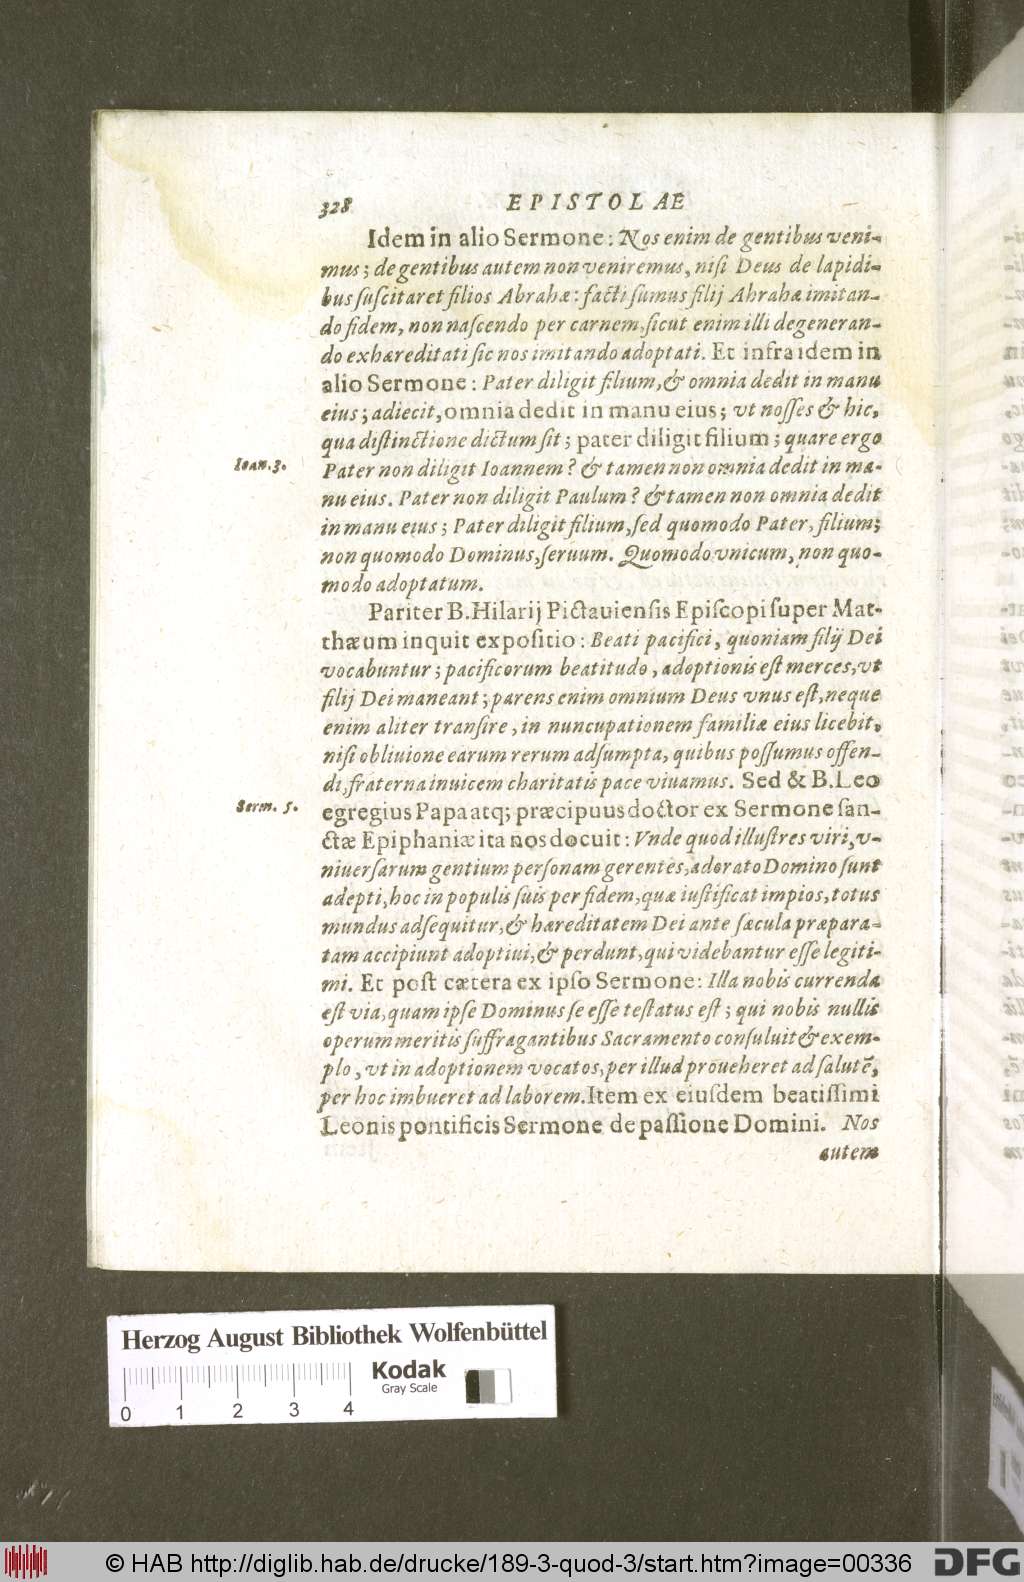 328 EPISTOLAE
Idem in alio Sermone: Nos enim de gentibus veni-
mus; de gentibus autem non veniremus, nisi Deus de lapidi-
bus suscitaret filios Abrahæ: facti sumus filij Ahrahæ imitan-
do fidem, non nascendo per carnem, sicut enim illi degeneran-
do exhæreditati sic nos imitando adoptati. Et infra idem in
alio Sermone: Pater diligit filium, & omnia dedit in manu
eius; adiecit, omnia dedit in manu eius; vt nosses & hic,
qua distinctione dictum sit; pater diligit filium; quare ergo
Ioan. 3.
Pater non diligit Ioannem? & tamen non omnia dedit in ma-
nu eius. Pater non diligit Paulum? & tamen non omnia dedit
in manu eius; Pater diligit filium, sed quomodo Pater, filium;
non quomodo Dominus, seruum. Quomodo vnicum, non quo-
modo adoptatum.
Pariter B. Hilarij Pictauiensis Episcopi super Mat-
thæum inquit expositio: Beati pacifici, quoniam filij Dei
vocabuntur; pacificorum beatitudo, adoptionis est merces, vt
filij Dei maneant; parens enim omnium Deus vnus est, neque
enim aliter transire, in nuncupationem familiæ eius licebit,
nisi obliuione earum rerum adsumpta, quibus possumus offen-
di, fraterna inuicem charitatis pace viuamus. Sed & B. Leo
Serm. 5.
egregius Papa atq; præcipuus doctor ex Sermone san-
ctæ Epiphaniæ ita nos docuit: Vnde quod illustres viri, v-
niuersarum gentium personam gerentes, adorato Domino sunt
adepti, hoc in populis suis per fidem, quæ iustificat impios, totus
mundus adsequitur, & hæreditatem Dei ante sæcula præpara-
tam accipiunt adoptiui, & perdunt, qui videbantur esse legiti-
mi. Et post cætera ex ipso Sermone: Illa nobis currenda
est via, quam ipse Dominus se esse testatus est; qui nobis nullis
operum meritis suffragantibus Sacramento consuluit & exem-
plo, vt in adoptionem vocatos, per illud proueheret ad salutẽ,
per hoc imbueret ad laborem. Item ex eiusdem beatissimi
Leonis pontificis Sermone de passione Domini. Nos
autem
Herzog August Bibliothek Wolfenbüttel
Kodak
Gray Scale
0 1 2 3 4
© HAB http://diglib.hab.de/drucke/189-3-quod-3/start.htm?image=00336
DFG